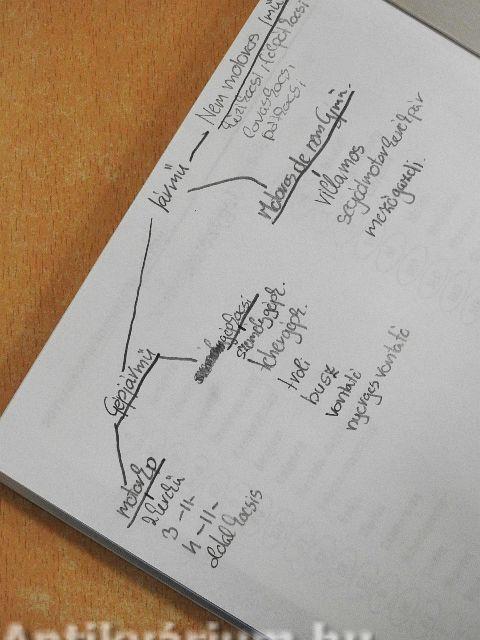 Jármű
Nem motoros
lovaskocsi
Motoros de nem Gjmű.
villamos
segédmotorkerékpár
mezőgazdi.
Gépjármű
személygépk.
tehergépk.
troli
busz
vontató
nyerges vontató
motorkp
2 kerekű
3 -11-
4 -11-
oldalkocsis
Antikvárium.hu